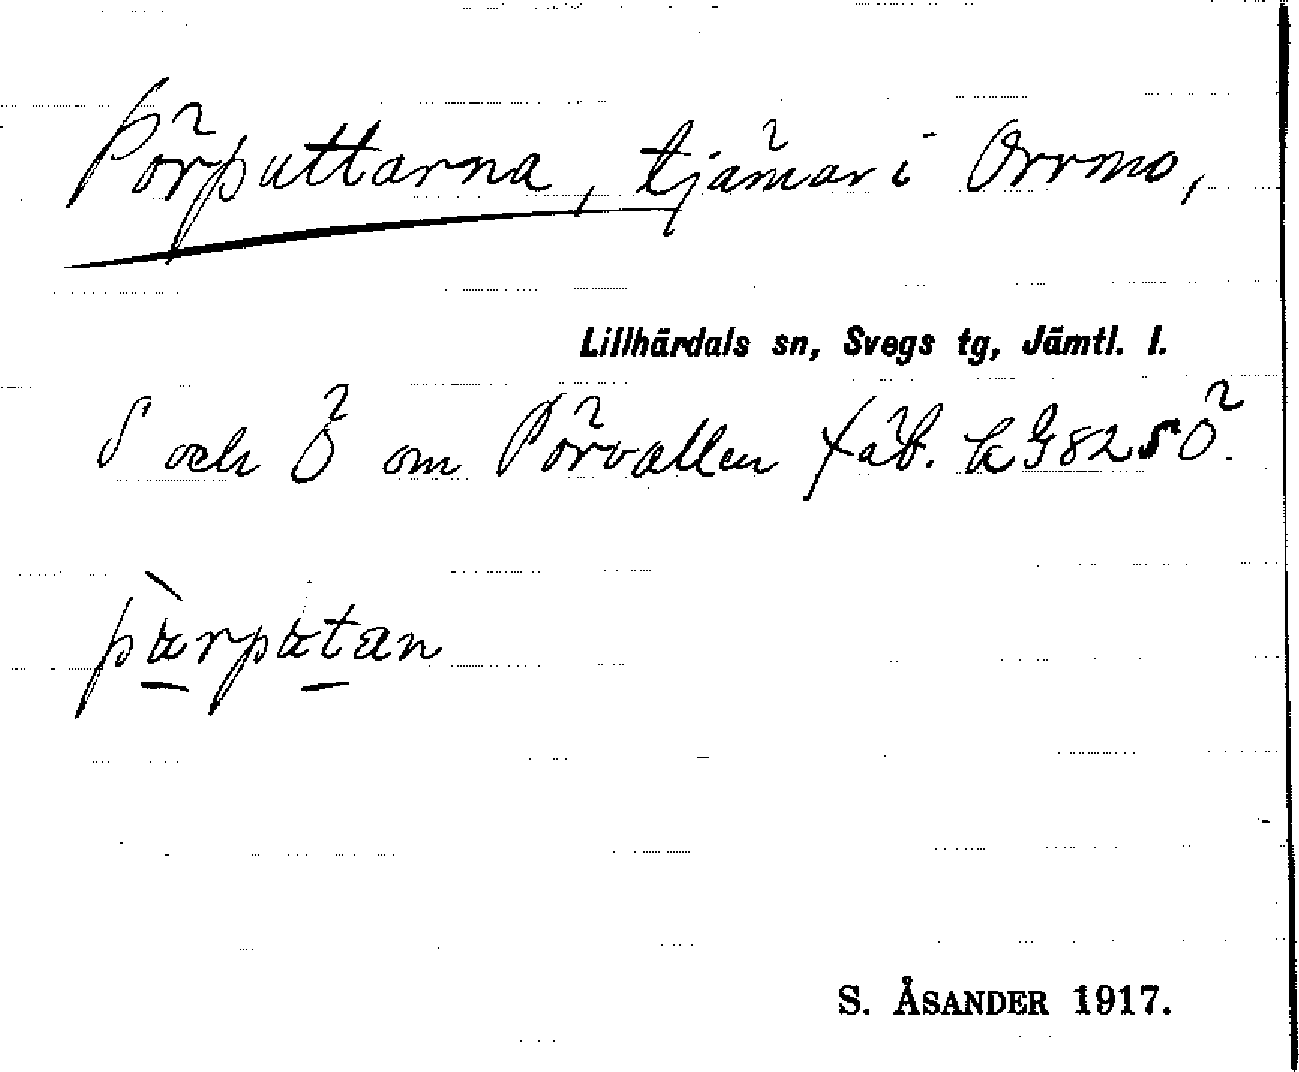 Pörputtarna, tjärnar i Orrmo,
Lillhärdals sn, Svegs tg, Jämtl. l.
S och Ö om Pörvallen fäb. k G 82 SÖ.
S. ÅSANDER 1917.